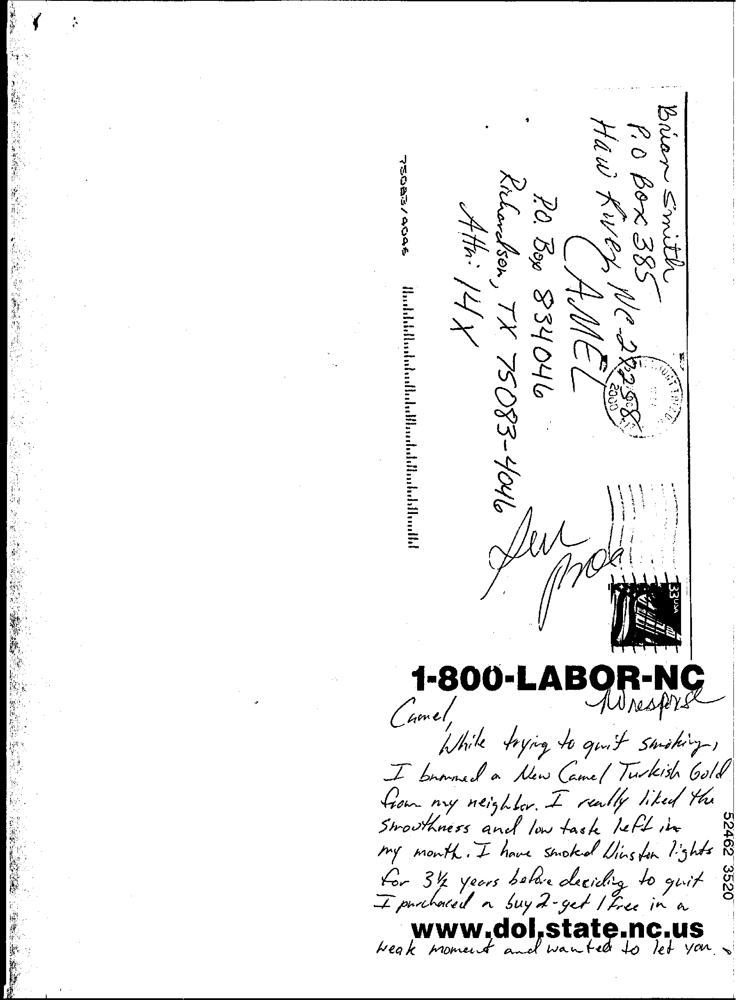 Brian Smith
P.O Box 385
Haw River, NC 27258
CAMEL
P.O. Box 834046
Richardson, TX 75083-4046
Attn: 14X
75083/4046
2000
33USA
1-800-LABOR-NC
No response
Camel,
While trying to quit smoking,
I bummed a New Camel Turkish Gold
from my neighbor. I really liked the
smoothness and low taste left in
my mouth. I have smoked Winston lights
for 3½ years before deciding to quit
I purchased a buy 2-get 1 free in a
www.dol.state.nc.us
weak moment and wanted to let you
52462 3520